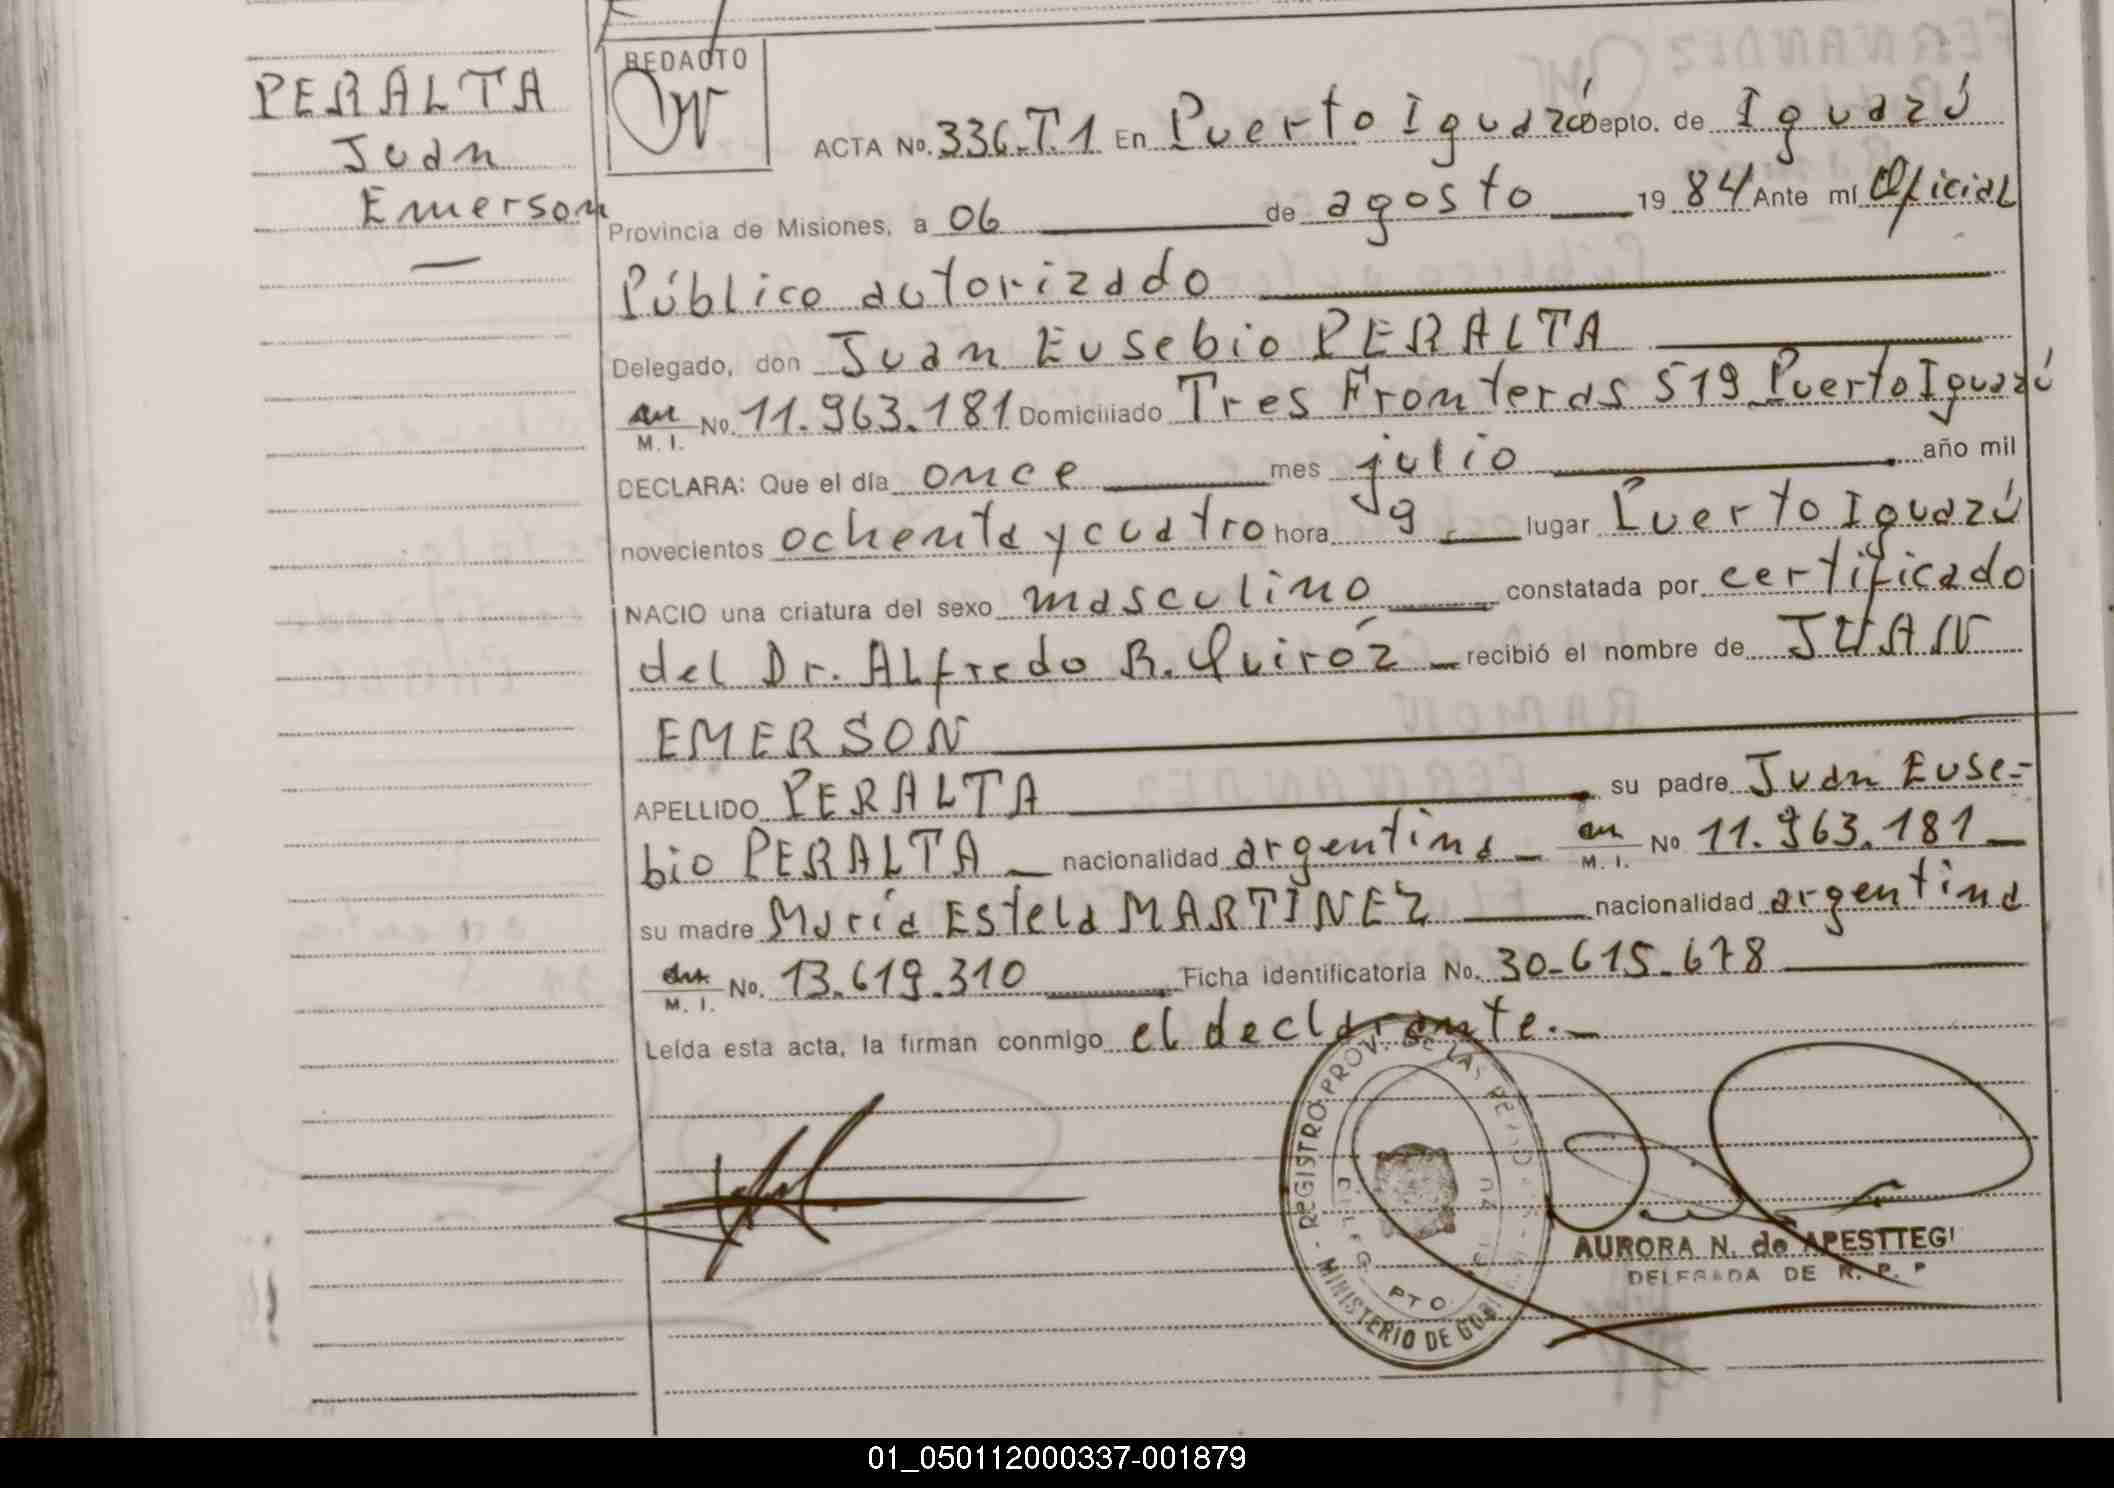 PERALTA
Juan
Emerson
REDACTO
ACTA No. 336.T.1 En Puerto Iguazú Depto. de Iguazú
Provincia de Misiones, a 06 de agosto 1984 Ante mí Oficial
Público autorizado
Delegado, don Juan Eusebio PERALTA
M. I. No. 11.963.181 Domiciliado Tres Fronteras 519 Puerto Iguazú
DECLARA: Que el día once mes julio año mil
novecientos ochenta y cuatro hora 9 lugar Puerto Iguazú
NACIO una criatura del sexo masculino constatada por certificado
del Dr. Alfredo R. Quiróz recibió el nombre de JUAN
EMERSON
APELLIDO PERALTA su padre Juan Euse-
bio PERALTA nacionalidad argentina M. I. No 11.963.181
su madre María Estela MARTINEZ nacionalidad argentina
M. I. No. 13.619.310 Ficha identificatoria No. 30-615.678
Leída esta acta, la firman conmigo el declarante.
REGISTRO PROV. DE LAS
MINISTERIO DE GOBI
PTO.
AURORA N. de APESTTEGI
DELEGADA DE R. P. P
01_050112000337-001879